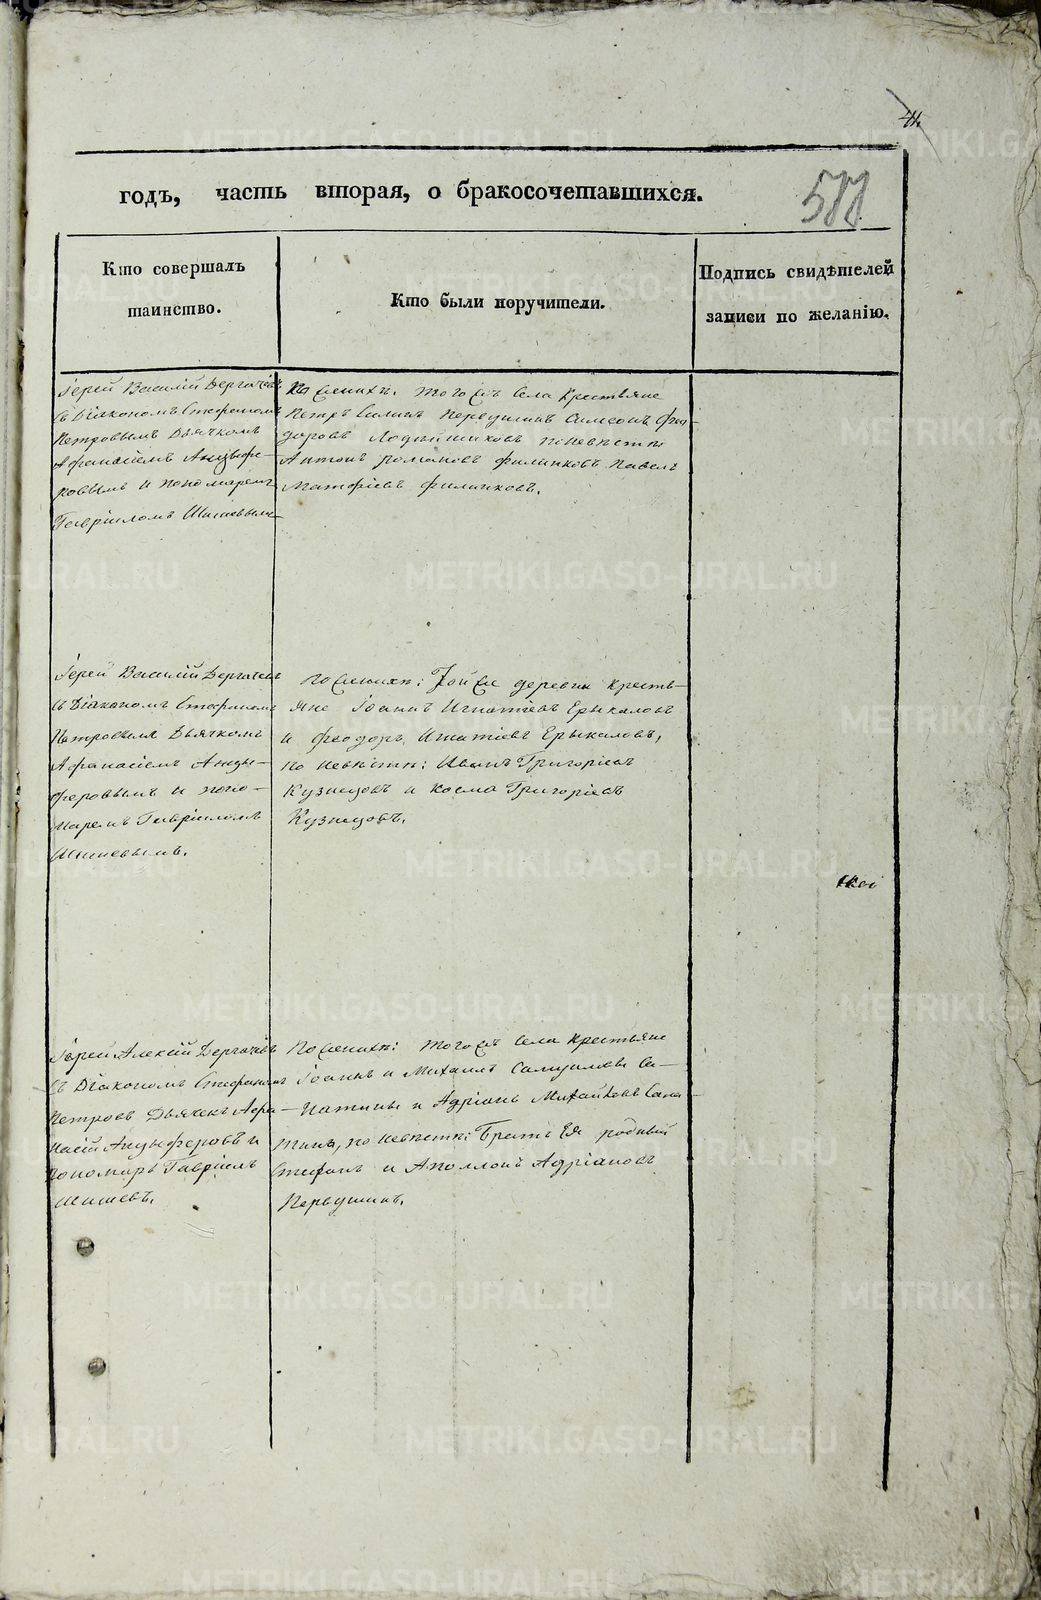 годъ, часть вторая, о бракосочетавшихся.
Кто совершалъ
таинство.
Кто были поручители.
Подпись свидѣтелей
записи по желанію.
Іерей Василій Дергачевъ
съ Діакономъ Стефаномъ
Петровымъ Дьячкомъ
Афанасіемъ Анцыфе-
ровымъ и пономаремъ
Гавріиломъ Шишевымъ
По женихѣ: того жъ села крестьяне
Петръ Первушинъ Симеонъ Фео-
доровъ по невѣстѣ
Антонъ Романовъ Филинковъ Павелъ
Матфіевъ Филинковъ.
Іерей Василій Дергачевъ
съ Діакономъ Стефаномъ
Петровымъ Дьячкомъ
Афанасіемъ Анцы-
феровымъ и поно-
маремъ Гавріиломъ
Шишевымъ.
по женихѣ: Той же деревни кресть-
яне Іоаннъ Игнатіевъ Ерыкаловъ
и Феодоръ Игнатіевъ Ерыкаловъ,
по невѣстѣ: Иванъ Григоріевъ
Кузнецовъ и Косма Григоріевъ
Кузнецовъ.
Іерей Алексій Дергачевъ
съ Діакономъ Стефаномъ
Петровъ Дьячекъ Афа-
насій Анцыферовъ и
пономарь Гавріилъ
Шишевъ.
По женихѣ: того жъ села крестьяне
Іоаннъ и Михаилъ Самуиловы Са-
патины и Адріанъ Михайловъ Сапа-
тинъ, по невѣстѣ: Братъ Ея родный
Стефанъ и Аполлонъ Адріановъ
Первушинъ.
METRIKI.GASO-URAL.RU